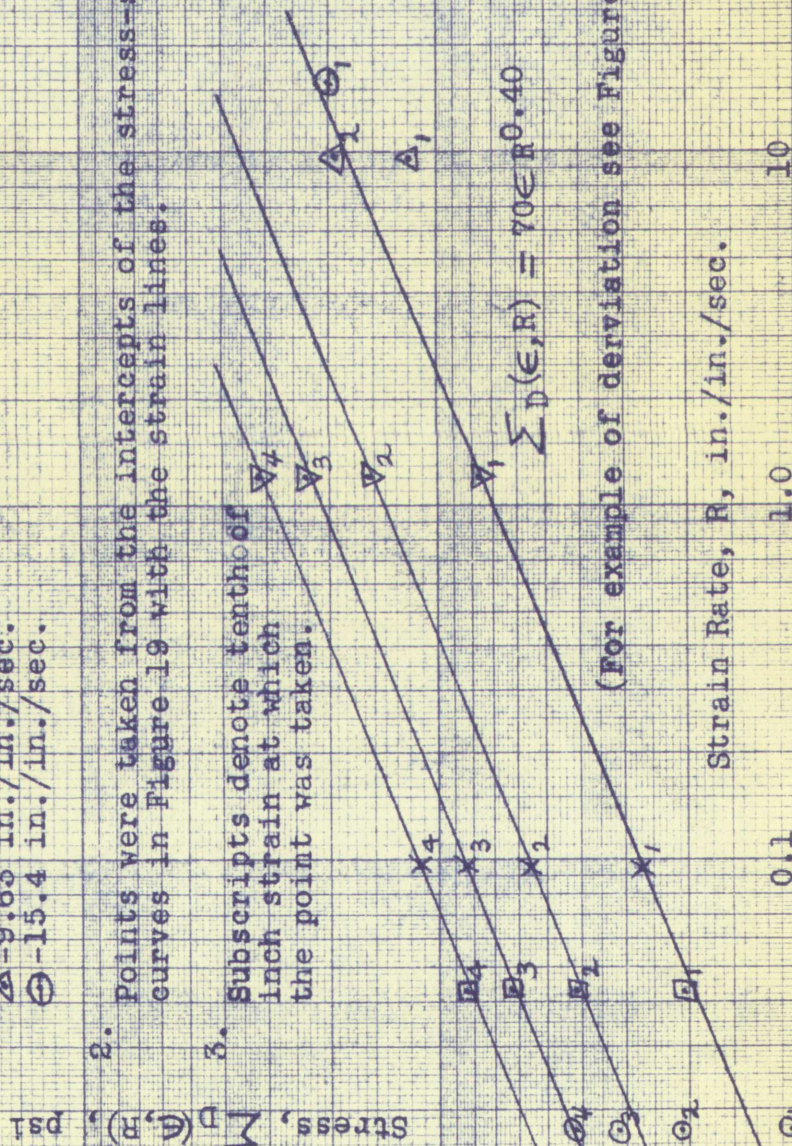 -9.63 in./in./sec.
-15.4 in./in./sec.
2. Points were taken from the intercepts of the stress-s
curves in Figure 19 with the strain lines.
3. Subscripts denote tenth of
inch strain at which
the point was taken.
Stress, ΣD(ϵ,R), psi
4
3
2
1
4
3
2
1
4
3
2
1
4
3
2
2
1
1
ΣD(ϵ,R) = 70ϵR0.40
(For example of derviation see Figure
Strain Rate, R, in./in./sec.
0.1
1.0
10